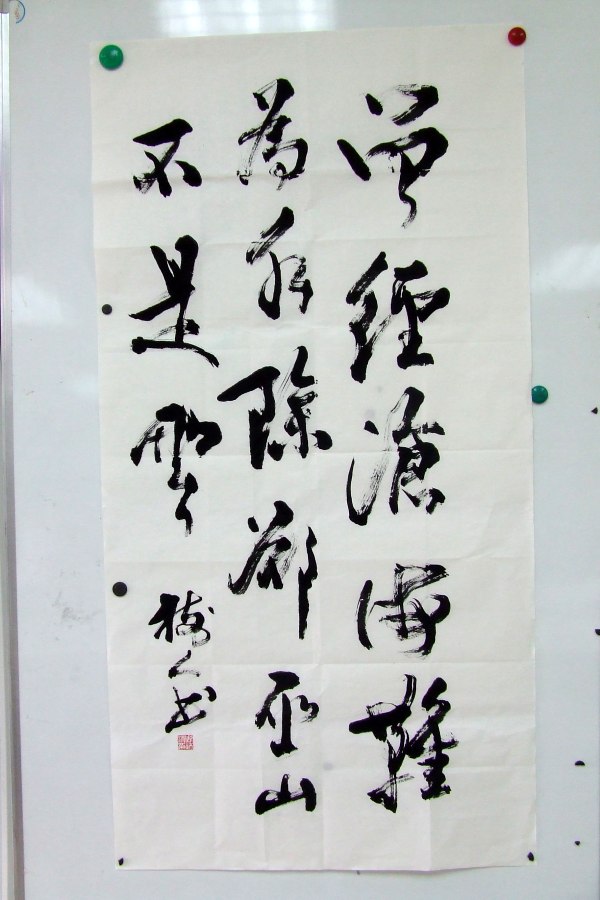 曾經滄海難
為水除卻巫山
不是雲
樹人書